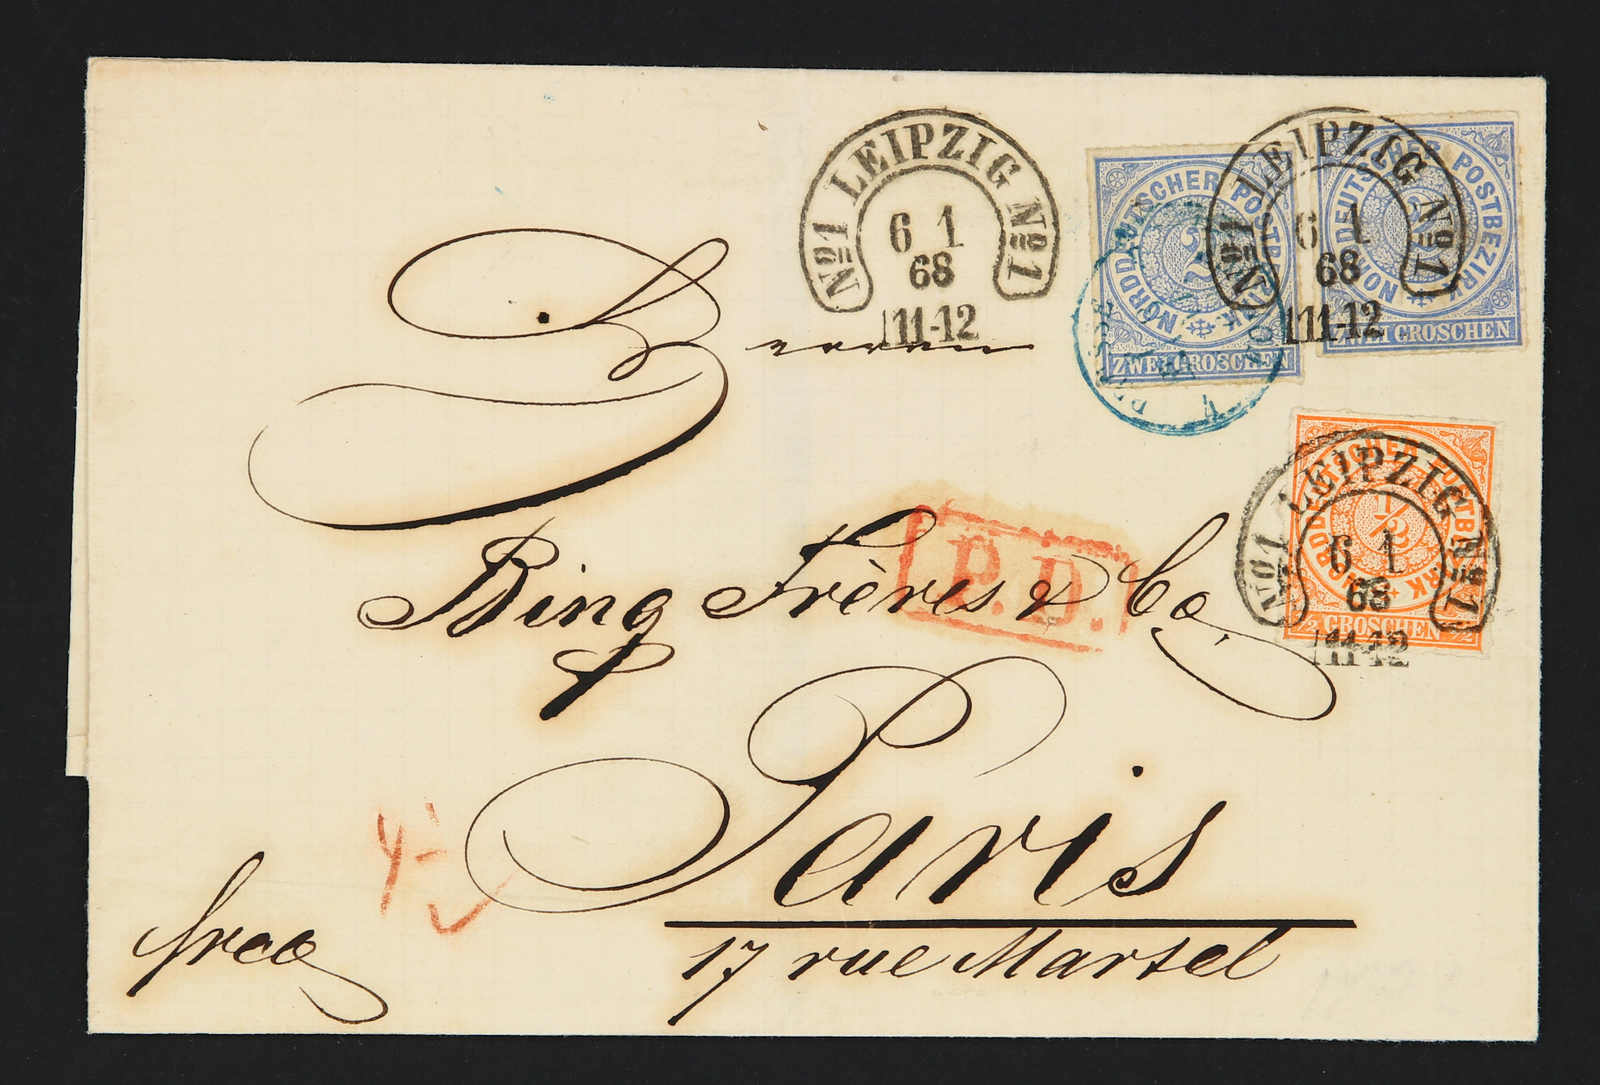 No1 LEIPZIG No1
6 1
68
11-12
NORDDEUTSCHER POSTBEZIRK
2
ZWEI GROSCHEN
No1 LEIPZIG No1
6 1
68
11-12
NORDDEUTSCHER POSTBEZIRK
ZWEI GROSCHEN
Herren
NORDDEUTSCHER POSTBEZIRK
1/2
1/2 GROSCHEN 1/2
No1 LEIPZIG No1
6 1
68
11-12
P.D.
Bing Frères & Co,
Paris
17 rue Martel
frco